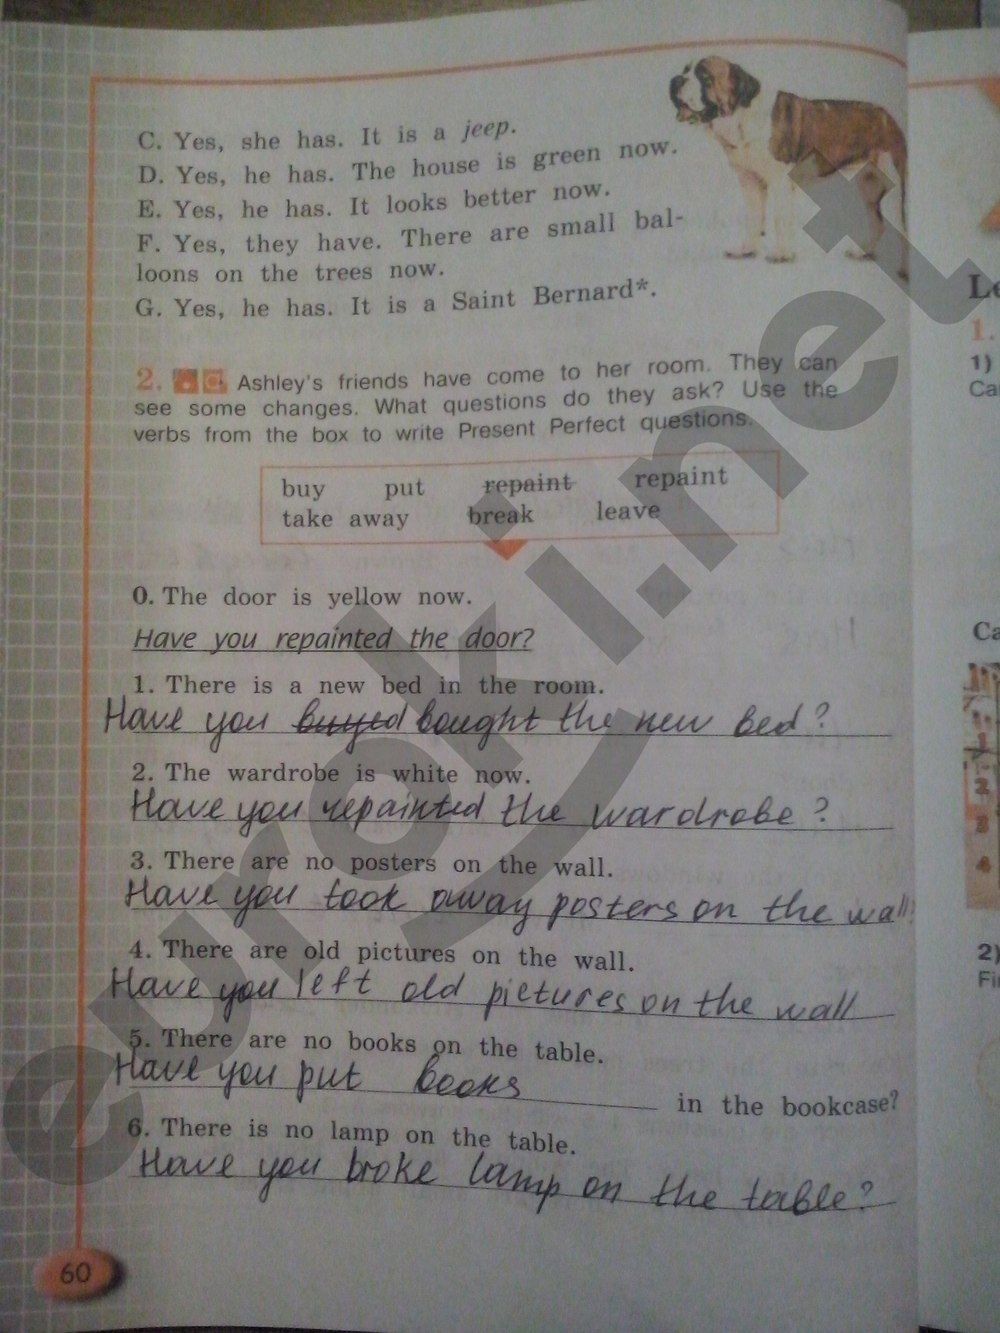 C. Yes, she has. It is a jeep.
D. Yes, he has. The house is green now.
E. Yes, he has. It looks better now.
F. Yes, they have. There are small bal-
loons on the trees now.
G. Yes, he has. It is a Saint Bernard*.
2. Ashley's friends have come to her room. They can
see some changes. What questions do they ask? Use the
verbs from the box to write Present Perfect questions.
buy put repaint repaint
take away break leave
0. The door is yellow now.
Have you repainted the door?
1. There is a new bed in the room.
Have you buyed bought the new bed?
2. The wardrobe is white now.
Have you repainted the wardrobe?
3. There are no posters on the wall.
Have you took away posters on the wall?
4. There are old pictures on the wall.
Have you left old pictures on the wall
5. There are no books on the table.
Have you put books in the bookcase?
6. There is no lamp on the table.
Have you broke lamp on the table?
60
Le
1.
1)
Ca
Ca
1
2
3
4
2)
Fi
euroki.net